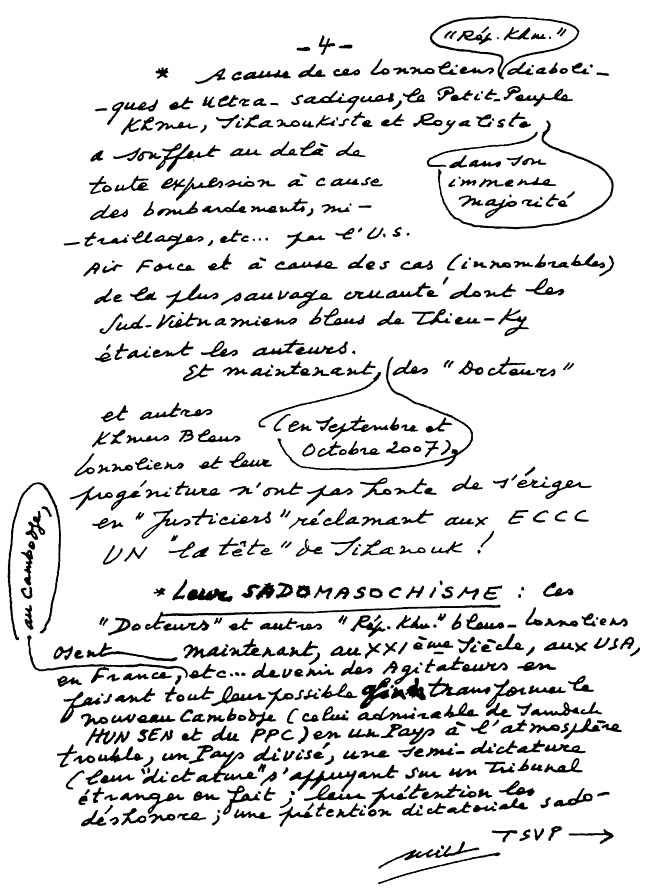 - 4 -
"Rép. Khm."
* A cause de ces lonnoliens diaboli-
-ques et ultra-sadiques, le Petit-Peuple
Khmer, Sihanoukiste et Royaliste,
dans son
immense
majorité
a souffert au delà de
toute expression à cause
des bombardements, mi-
-traillages, etc... par l'U.S.
Air Force et à cause des cas (innombrables)
de la plus sauvage cruauté dont les
Sud-Viêtnamiens bleus de Thieu-Ky
étaient les auteurs.
Et maintenant, des "Docteurs"
(en Septembre et
Octobre 2007),
et autres
Khmers Bleus
lonnoliens et leur
progéniture n'ont pas honte de s'ériger
en "Justiciers", réclamant aux ECCC
UN "la tête" de Sihanouk !
* Leur SADOMASOCHISME : Ces
"Docteurs" et autres "Rép. Khm." bleus-lonnoliens
osent maintenant, au XXIème Siècle, aux USA,
au Cambodge,
en France, etc... devenir des Agitateurs en
faisant tout leur possible transformer le
nouveau Cambodge (celui admirable de Samdech
HUN SEN et du PPC) en un Pays à l'atmosphère
trouble, un Pays divisé, une semi-dictature
(leur "dictature" s'appuyant sur un Tribunal
étranger en fait ; leur prétention les
déshonore ; une prétention dictatoriale sado-
TSVP →